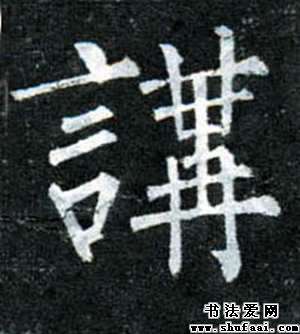 講
书法爱网
www.shufaai.com